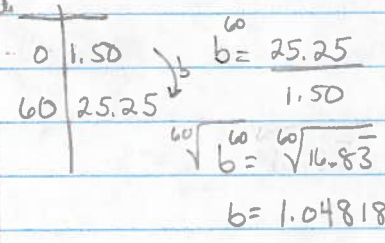 0 | 1.50
60 | 25.25
b
b^60 = 25.25 / 1.50
⁶⁰√b^60 = ⁶⁰√16.83̅
b = 1.04818